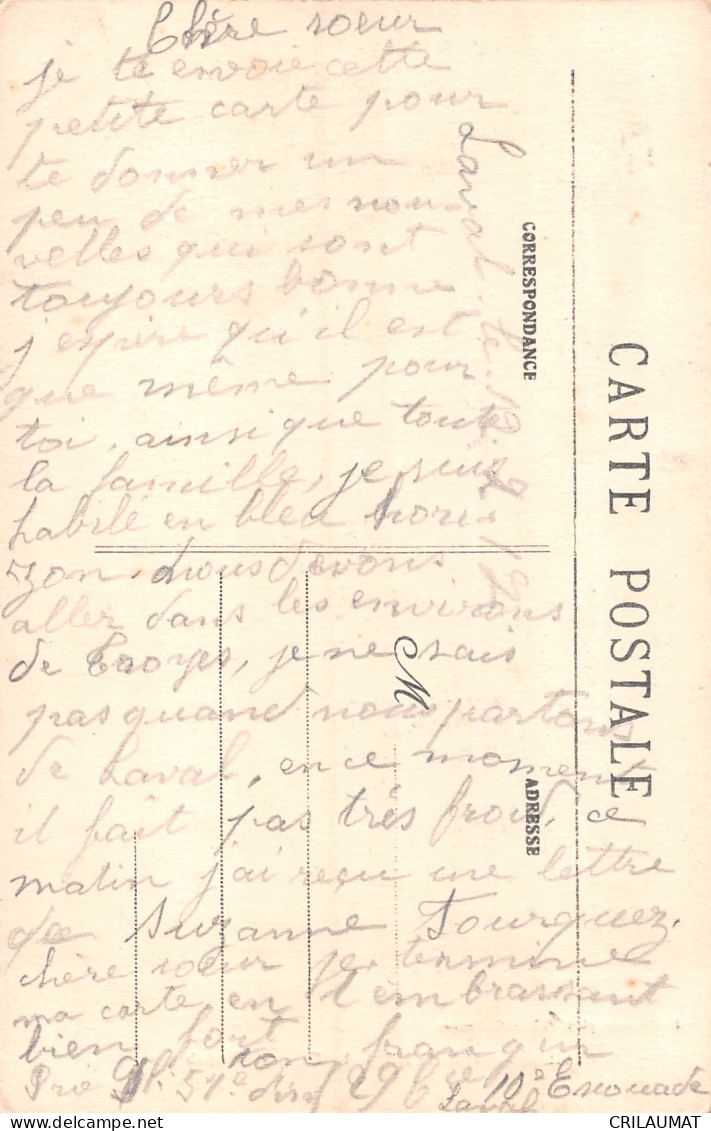 Chère soeur
je te envoie cette
petite carte pour
te donner un
peu de mes nou
velles qui sont
toujours bonne
j'espère qu'il est
que même pour
toi, ainsi que toute
la famille, je suis
habilé en bleu hori
zon, nous devons
aller dans les environs
de Troyes, je ne sais
pas quand nous partons
de Laval, en ce moment
il fait pas très froid, ce
matin j'ai reçu une lettre
de Suzanne Tourquez.
chère soeur je termine
ma carte en t'embrassant
bien fort
ton frangin
51e 29
10e Escouade
Laval
Laval le
CORRESPONDANCE
CARTE POSTALE
M
ADRESSE
CRILAUMAT